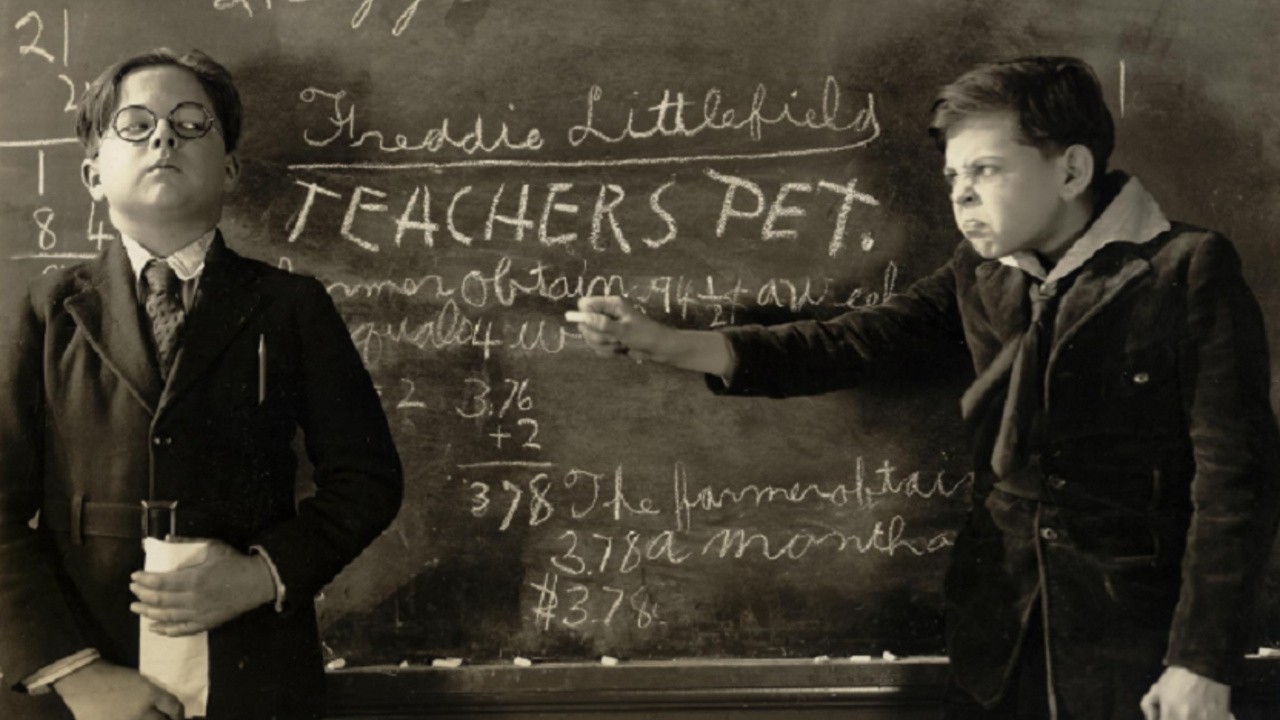 21
2
1
8 4
Freddie Littlefield
TEACHERS PET.
rmer obtain 94 1/2 a week
quals 4 w
2 3.76
+2
378 The farmer obtai
3.78 a month
$3.78.